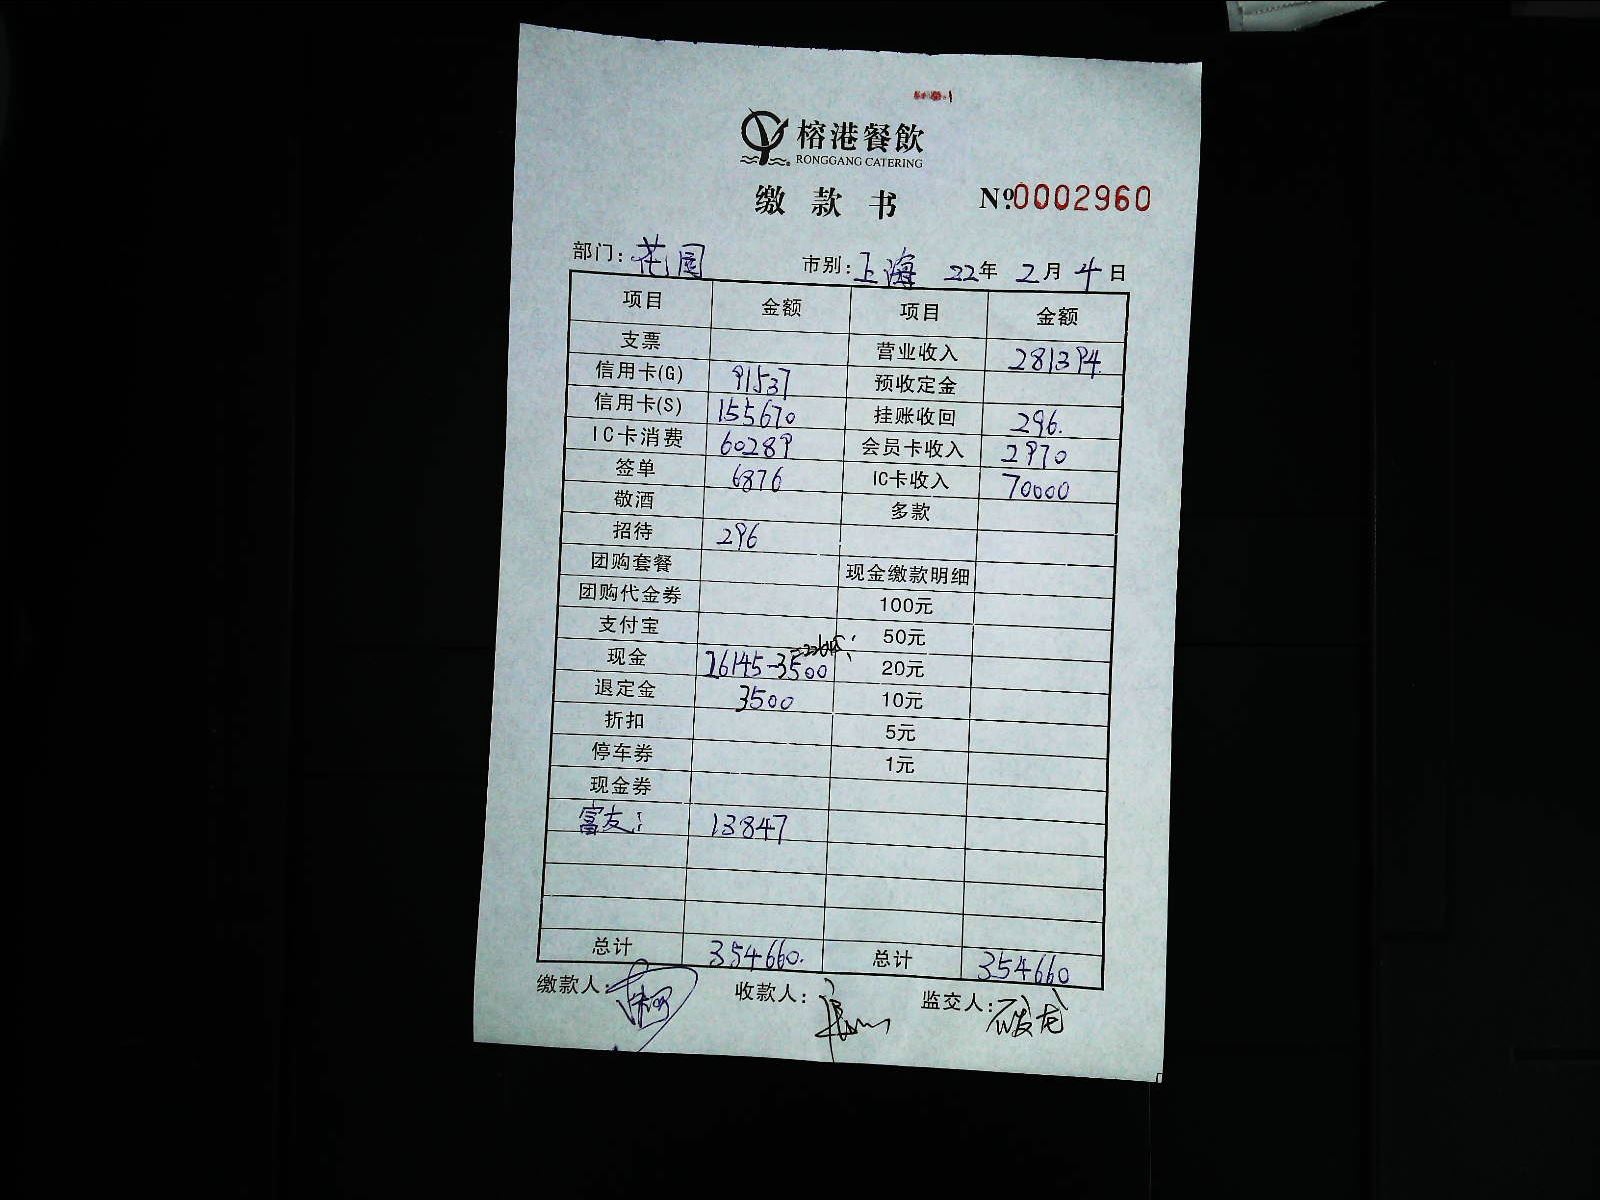 榕港餐飲
RONGGANG CATERING
缴款书 №0002960
部门：花园 市别：上海 22年 2月 4日
项目 金额 项目 金额
支票 营业收入 281394.
信用卡(G) 91537 预收定金
信用卡(S) 155670 挂账收回 296.
IC卡消费 60289 会员卡收入 2970
签单 6876 IC卡收入 70000
敬酒 多款
招待 296
团购套餐 现金缴款明细
团购代金券 100元
支付宝 50元
现金 26145-3500 20元
退定金 3500 10元
折扣 5元
停车券 1元
现金券
富友: 13847
总计 354660. 总计 354660
缴款人: 收款人: 监交人: